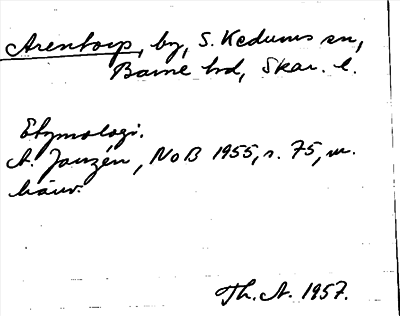 Arentorp, by, S. Kedums sn,
Barne hd, Skar. l.
Etymologi.
A. Janzén, NoB 1955, s. 75, m.
hänv.
Th. A. 1957.